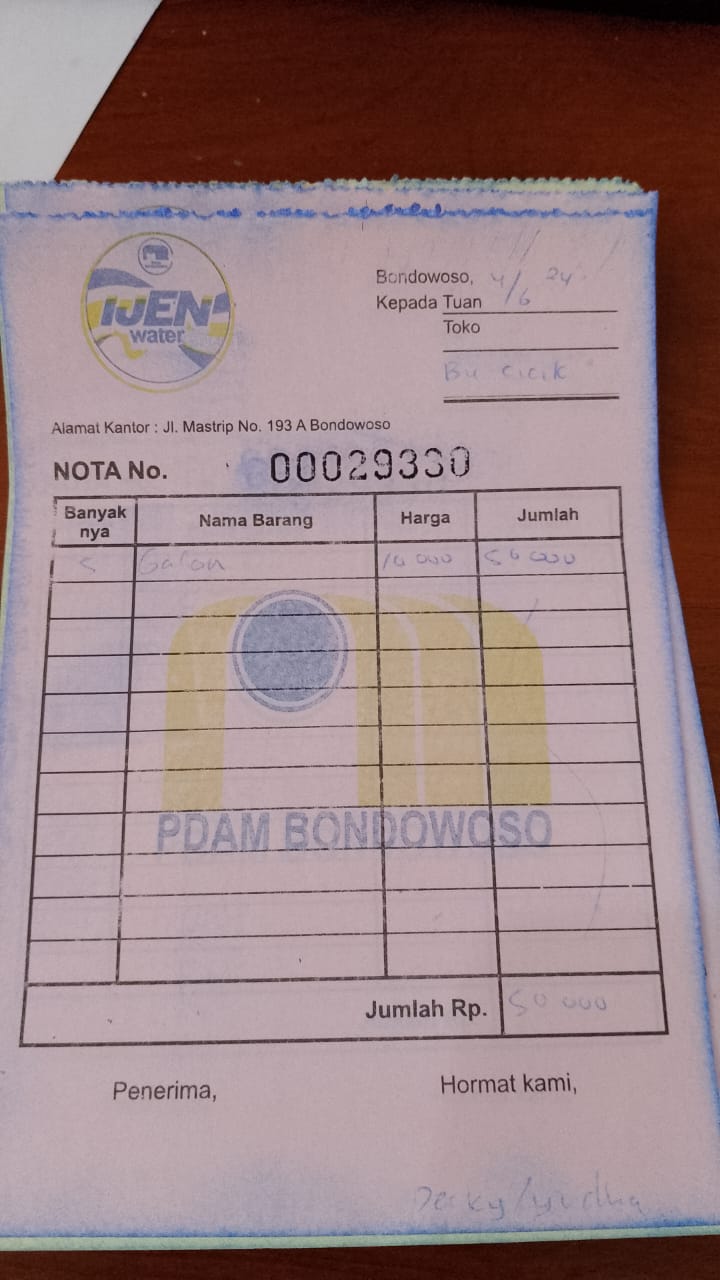 IJEN
water
Bondowoso, 4/6 24
Kepada Tuan
Toko
Bu cicik
Alamat Kantor : Jl. Mastrip No. 193 A Bondowoso
NOTA No. 00029330
Banyak nya Nama Barang Harga Jumlah
5 Galon 10 000 50 000
PDAM BONDOWOSO
Jumlah Rp. 50 000
Penerima, Hormat kami,